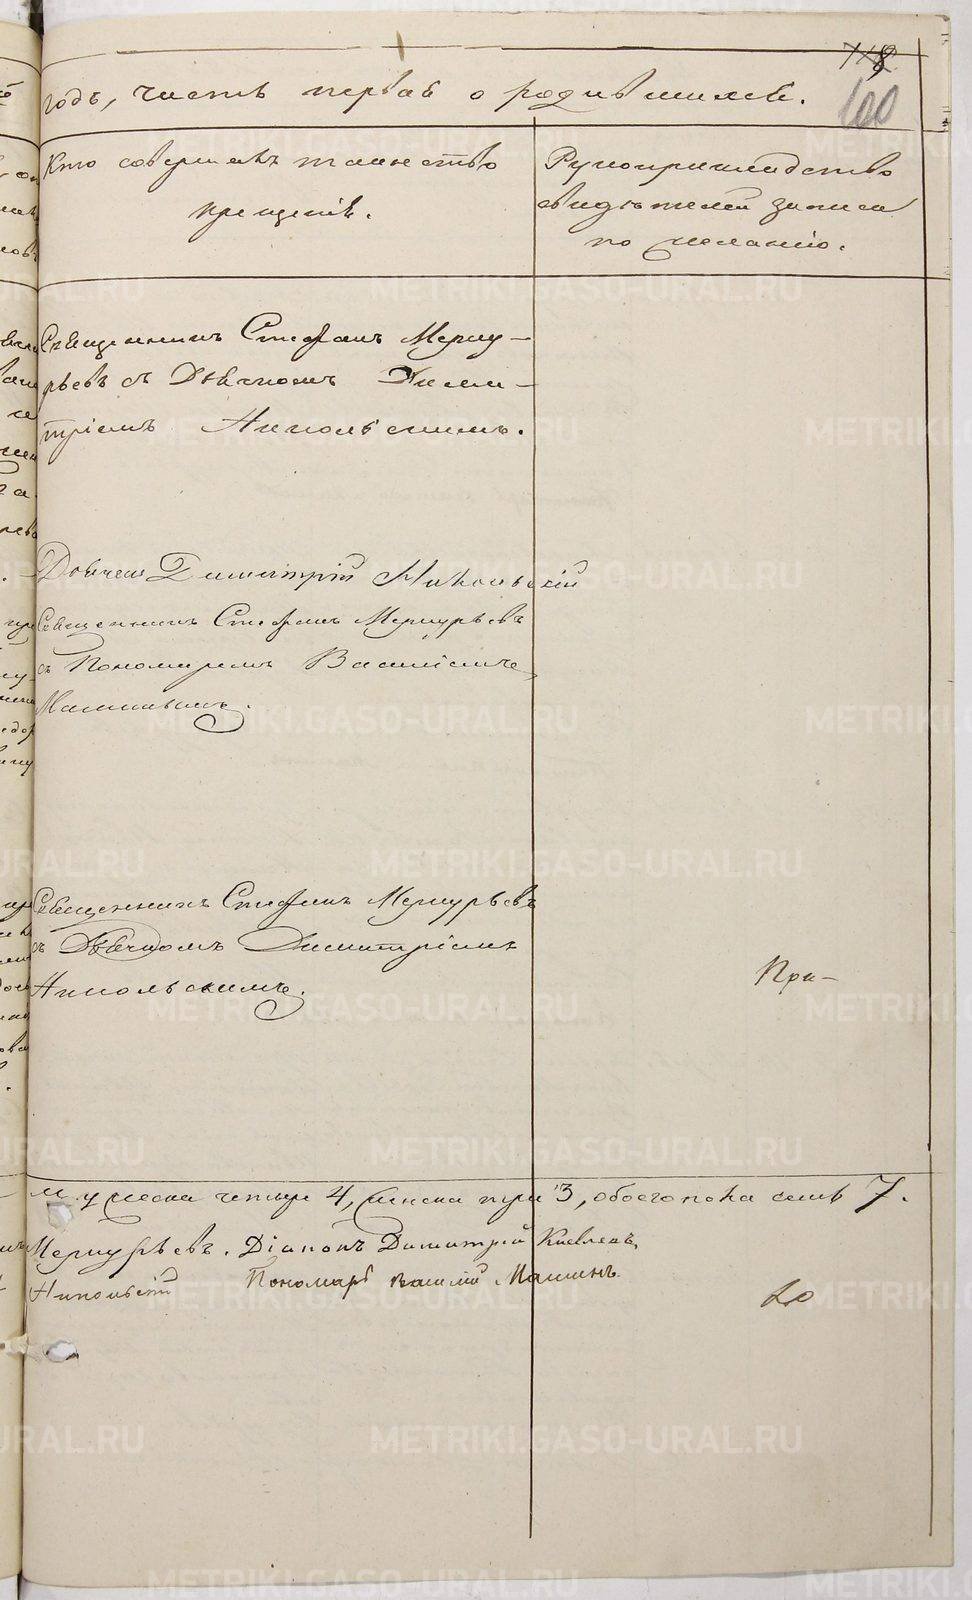 718
100
годъ, часть первая о родившихся.
Кто совершалъ таинство
крещенія.
Рукоприкладство
свидѣтелей записи
по желанію.
Священникъ Стефанъ Мерку-
рьевъ съ Дьячкомъ Дими-
тріемъ Никольскимъ.
Дьячекъ Димитрій Никольскій
Священникъ Стефанъ Меркурьевъ
съ Пономаремъ Василіемъ
Малининымъ.
Священникъ Стефанъ Меркурьевъ
съ Дьячкомъ Димитріемъ
Никольскимъ.
При-
мужеска четыре 4, женска три 3, обоего пола семь 7.
Меркурьевъ. Діаконъ Димитрій
Никольскій Пономарь Василий
METRIKI.GASO-URAL.RU